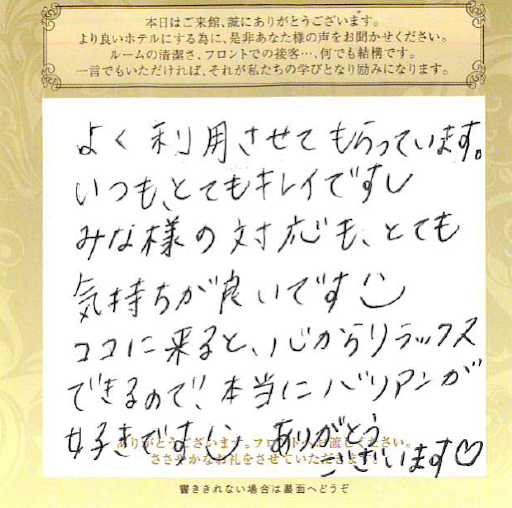 本日はご来館、誠にありがとうございます。
より良いホテルにする為に、是非あなた様の声をお聞かせください。
ルームの清潔さ、フロントでの接客…、何でも結構です。
一言でもいただければ、それが私たちの学びとなり励みになります。
よく利用させてもらっています。
いつも、とてもキレイですし
みな様の対応も、とても
気持ちが良いです
ココに来ると、心からリラックス
できるので!本当にバリアンが
好きです ありがとう
ございます♡
ありがとうございます。フロントへお渡しください。
ささやかなお礼をさせていただきます。
書ききれない場合は裏面へどうぞ